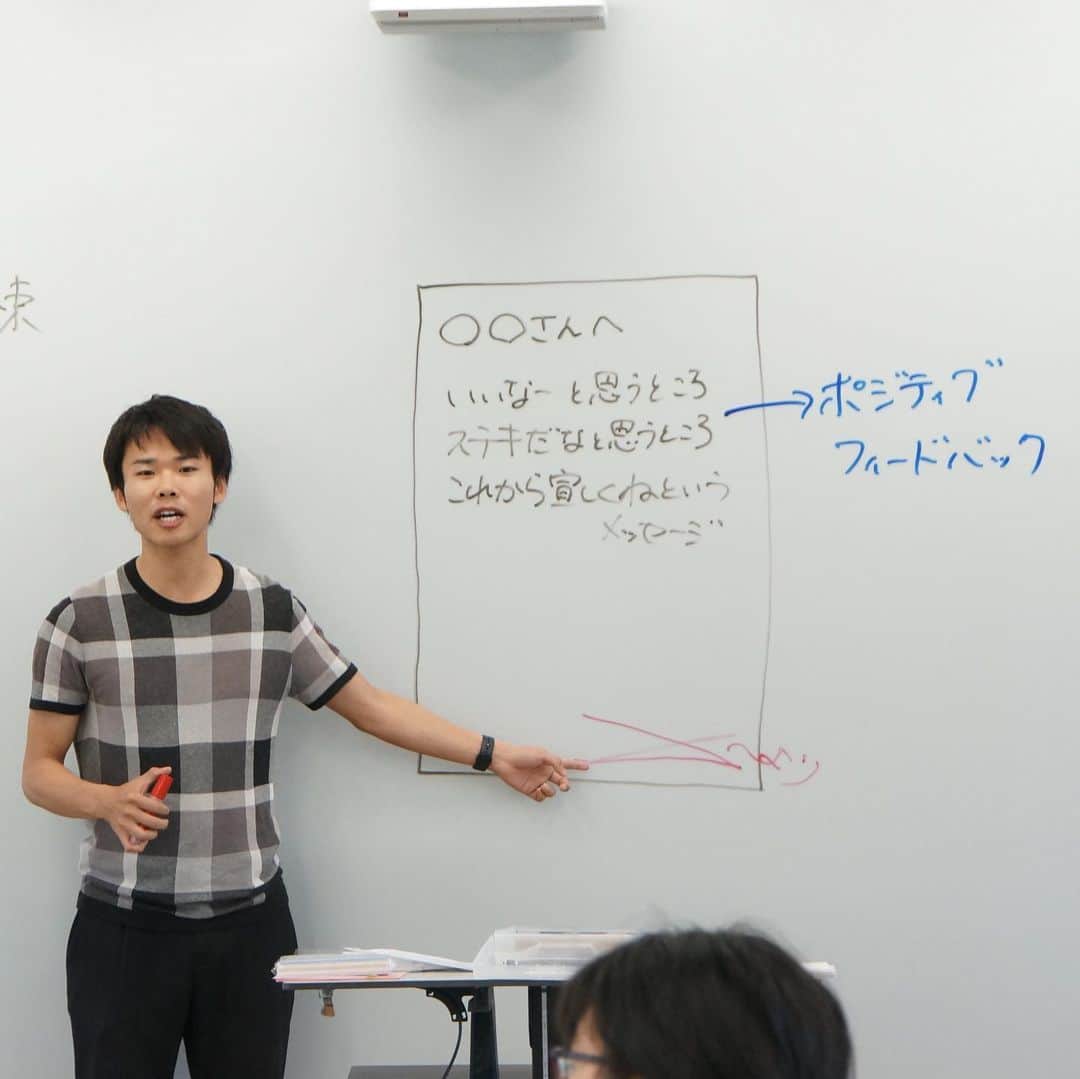 束
○○さんへ
いいなーと思うところ
ステキだなと思うところ
これから宜しくねという
メッセージ
→ポジティブ
フィードバック